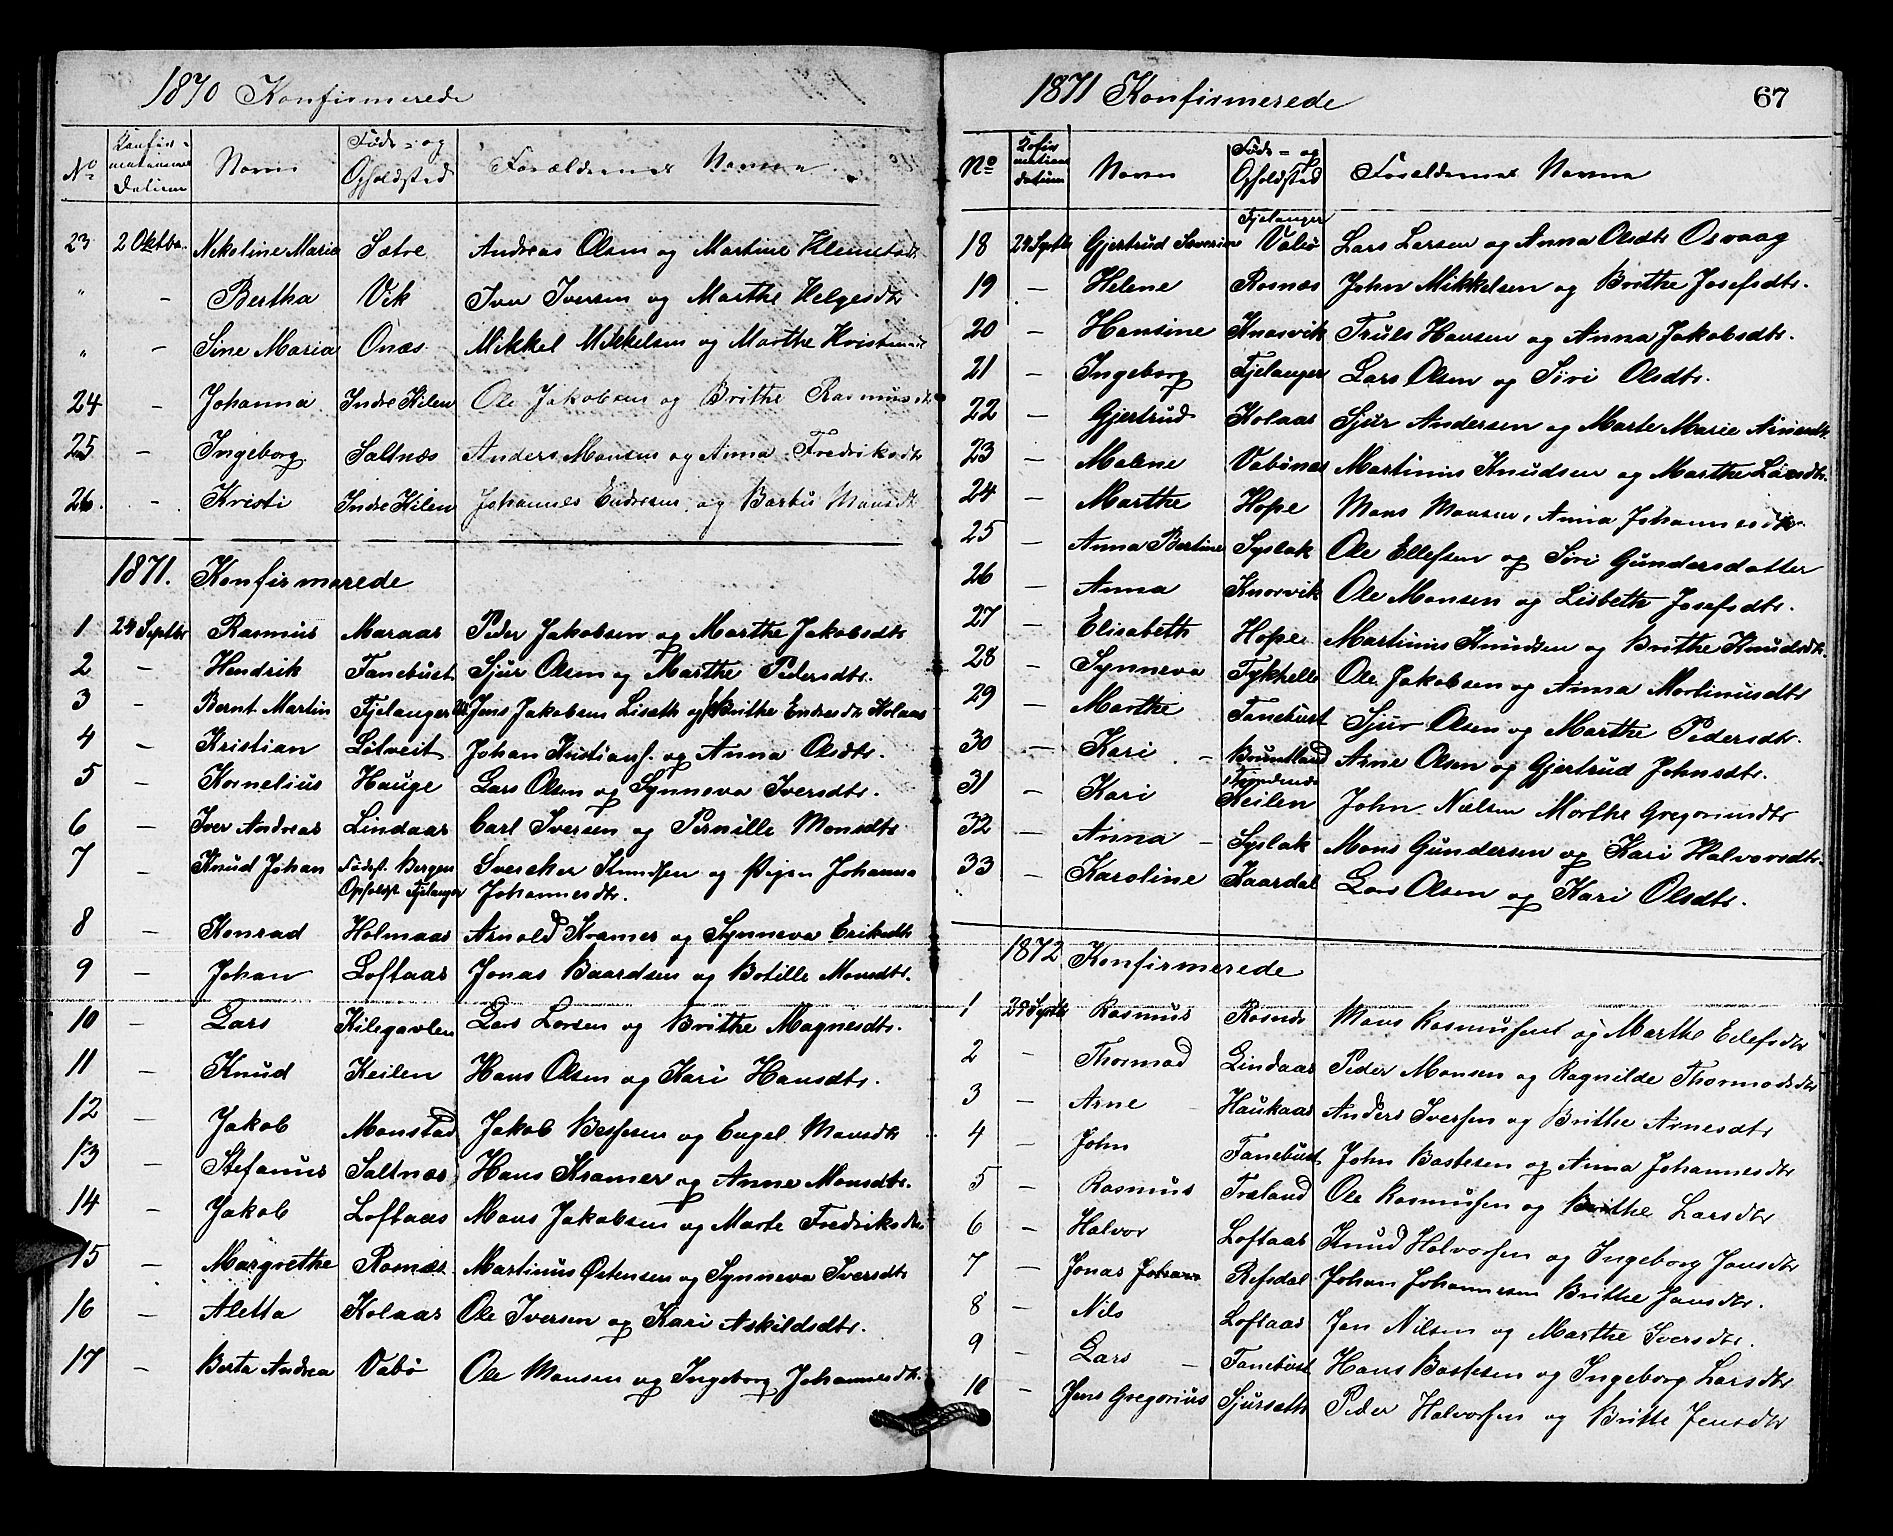 1870 Konfirmerede
No Konfirmationens Datum Navn Føde- og Opholdsted Forældrenes Navne
23 2 Oktbr. Nikoline Maria Sætre Andreas Olsen og Martine Klemetsdr
" - Bertha Vik Iver Iversen og Marthe Helgesdtr
" - Sine Maria Onæs Mikkel Mikkelsen og Marthe
24 - Johanna Indre Kilen Ole Jakobsen og Brithe Rasmusdtr
25 - Ingeborg Saltnæs Anders Monsen og Anna Fredriksdtr
26. - Kristi Indre Kilen Johannes Endresen og Monsdtr
1871. Konfirmerede
1 24 Septbr Rasmus Maraas Peder Jakobsen og Marthe Jakobsdtr
2 - Hendrik Fanebust Sjur Olsen og Marthe Pedersdtr.
3 - Bernt Martin Fjelanger Jens Jakobsen Liseth og Brithe Endresdtr Kolaas
4 - Kristian Litveit Johan Kristians. og Anna Olsdtr.
5 - Kornelius Hauge Lars Olsen og Synneva Iversdtr.
6 - Iver Andreas Lindaas Carl Iversen og Pernille Monsdtr
7 - Knud Johan Fødest. Bergen Knudsen og Pigen Johanna
Opholdst Fjelanger Johannesdtr.
8 - Konrad Holmaas Arnold Kramer og Synneva Eriksdtr
9 - Johan Loftaas Jonas Baardsen og Botille Monsdtr.
10 - Lars Kilegavlen Lars Larsen og Brithe Magnesdtr.
11 - Knud Keilen Hans Olsen og Kari Hansdtr.
12 - Jakob Monstad Jakob Bessesen og Engel Monsdtr
13 - Stefanus Saltnæs Hans Kramer og Anne Monsdtr.
14 - Jakob Loftaas Mons Jakobsen og Marte Fredriksdtr
15 - Margrethe Romæs Martinus Østensen og Synneva Iversdtr
16 - Aletta Kolaas Ole Iversen og Kari Askildsdtr.
17 - Berta Andrea Vabø Ole Monsen og Ingeborg Johannesdtr.
1871 Konfirmerede 67
No Kofirmations datum Navn Føde- og Opholdsted Forældrenes Navne
Fjelanger
18 24 Septbr Gjertrud Severine Vabø Lars Larsen og Anna Olsdtr Osvaag
19 - Helene Rosnæs John Mikkelsen og Brithe Josefsdtr.
20 - Hansine Knarvik Truls Hansen og Anna Jakobsdtr.
21 - Ingeborg Fjelanger Lars Olsen og Siri Olsdtr.
22 - Gjertrud Kolaas Sjur Andersen og Marte Marie Arnesdtr
23 - Malene Vabønes Martinus Knudsen og Marthe Larsdtr.
24 - Marthe Hope Mons Monsen, Anna Johannesdtr
25 - Anna Bertine Syslak Ole Ellefsen og Siri Gundersdatter
26 - Anna Knarvik Ole Monsen og Lisbeth Josefsdtr.
27 - Elisabeth Hope Martinus Knudsen og Brithe Knudsdtr.
28 - Synneva Fykhelle Ole Jakobsen og Anna Martinusdtr
29 - Marthe Fanebust Sjur Olsen og Marthe Pedersdtr.
30 - Kari - Bruntland Arne Olsen og Gjertrud Johnsdtr.
31 - Kari Keilen John Nielsen Marthe Gregoriusdtr
32 - Anna - Syslak Mons Gundersen og Kari Halvorsdtr.
33 - Karoline Kaardal Lars Olsen og Kari Olsdtr.
1872 Konfirmerede
1 29 Septbr Rasmus Rosnes Mons Rasmussen og Marthe Ellefsdtr
2 - Thormod Lindaas Peder Monsen og Ragnilde Thormodsdtr
3 - Arne Haukaas Anders Iversen og Brithe Arnesdtr
4 - John Fanebust John Bastesen og Anna Johannesdtr
5 - Rasmus Træland Ole Rasmussen og Brithe Larsdtr
6 - Halvor Loftaas Knud Halvorsen og Ingeborg Jonsdtr
7 - Jonas Johan Refsdal Johan Johannesen Brithe Jonsdtr.
8 - Nils Loftaas Jon Nilsen og Marthe Iversdtr.
9 - Lars - Fanebust Hans Bastesen og Ingeborg Larsdtr
10 - Jens Gregorius Sjurseth Peder Halvorsen og Britte Jensdtr